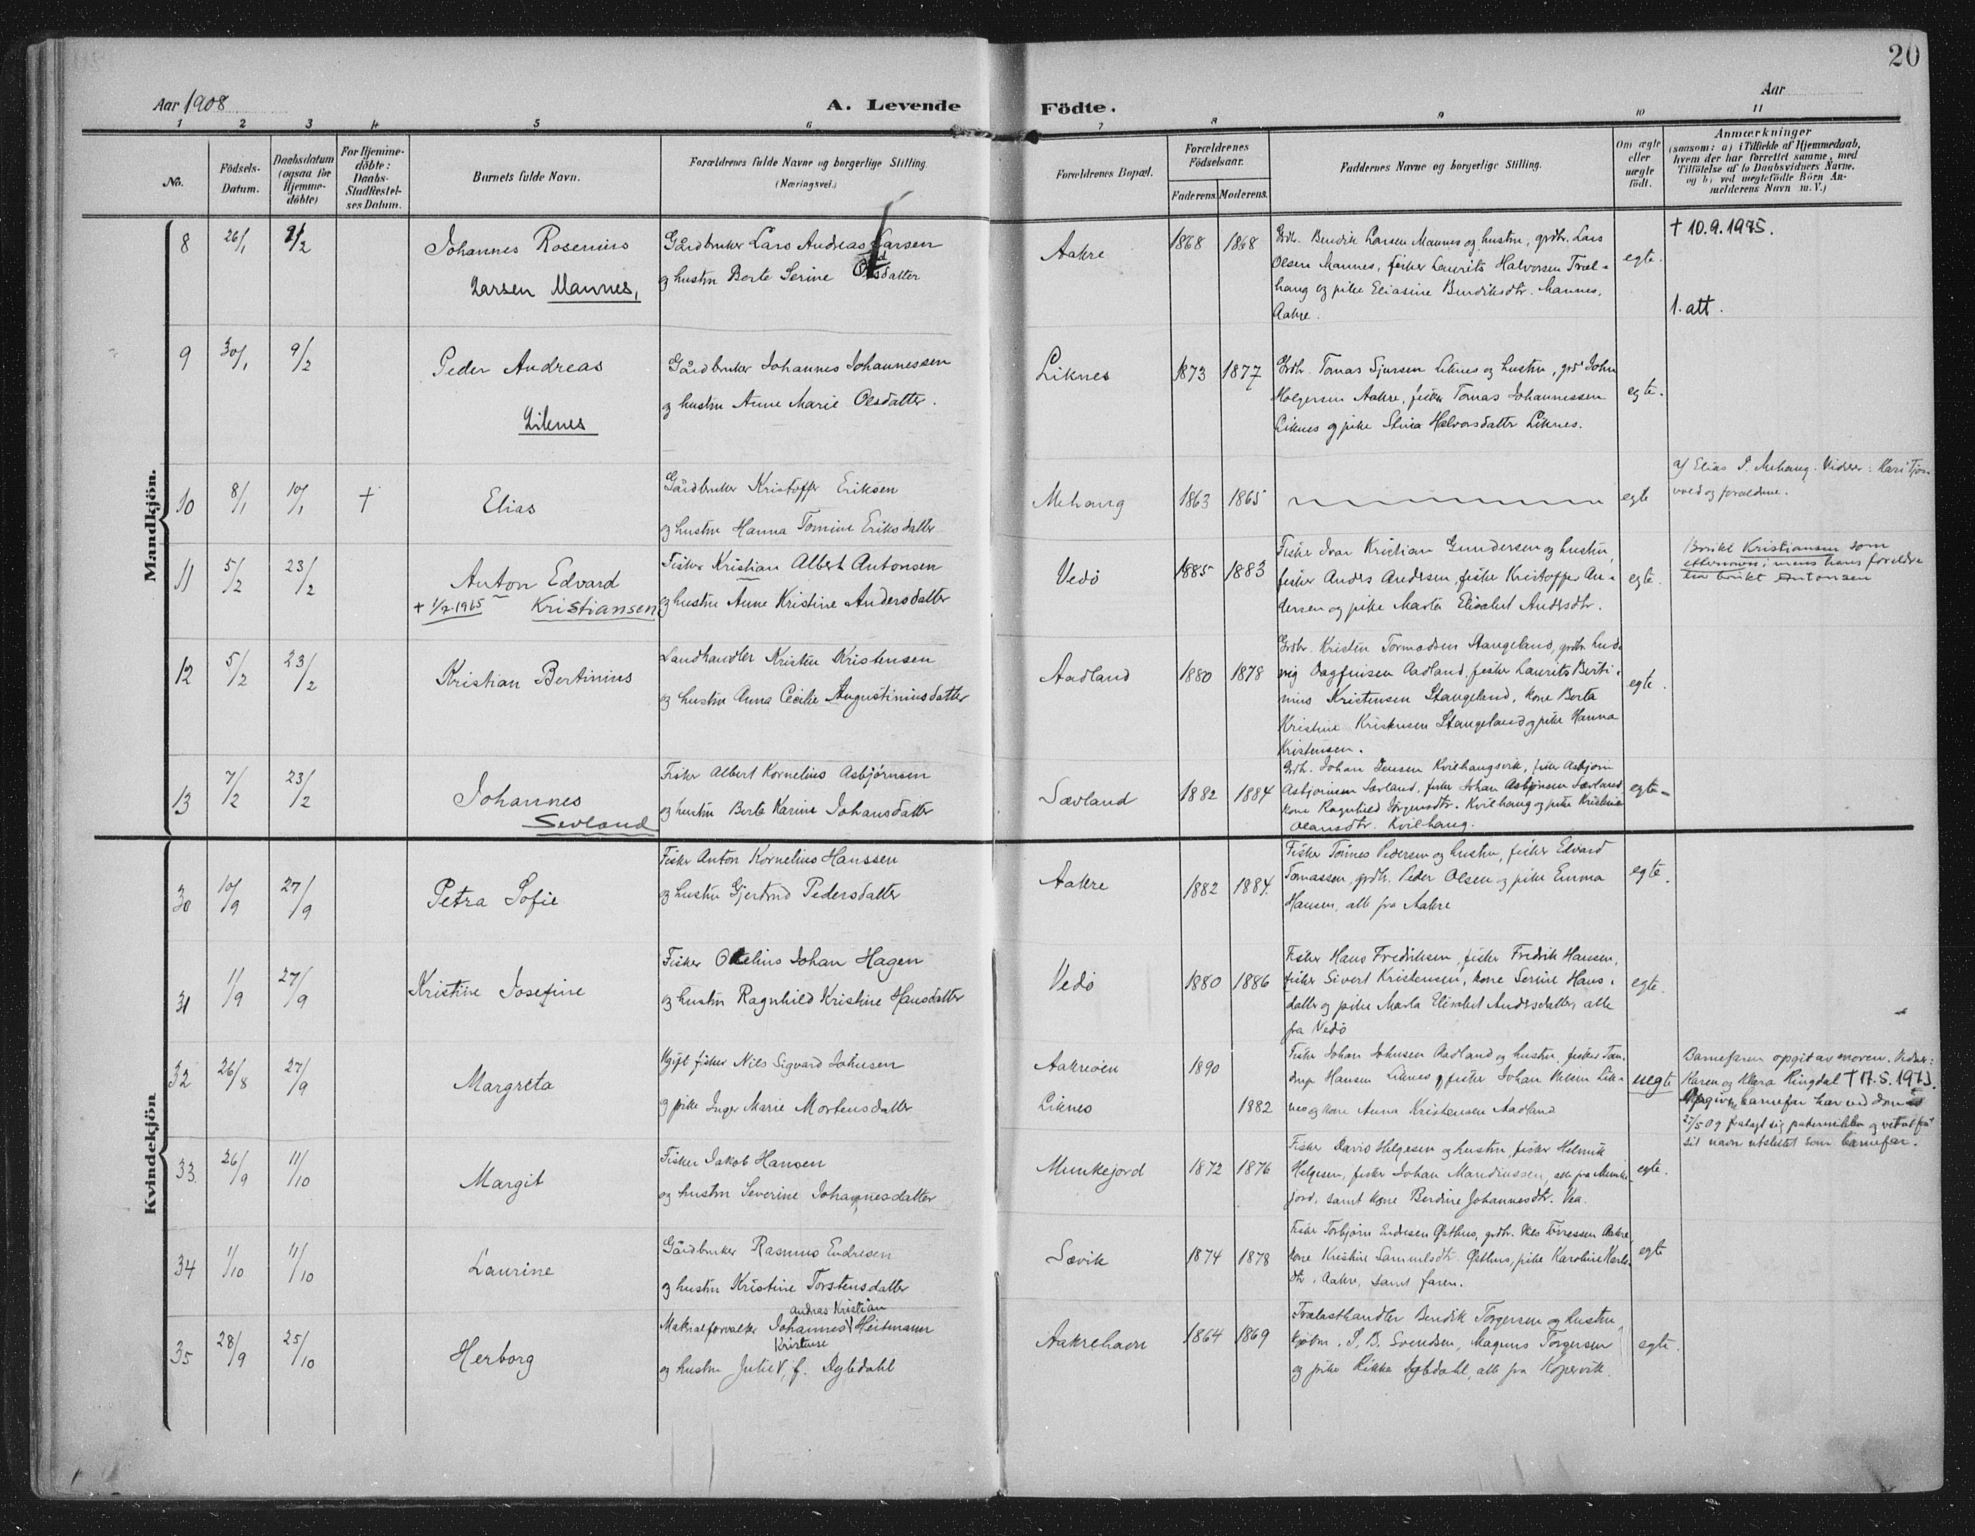 20
Aar 1908
A. Levende Födte.
Aar
1 2 3 4 5 6 7 8 9 10 11
No.
Födsels-Datum.
Daabsdatum (ogsaa for Hjemmedöbte)
For Hjemmedöbte: Daabs-Stadfæstelses Datum.
Barnets fulde Navn.
Forældrenes fulde Navne og borgerlige Stilling. (Næringsvei.)
Forældrenes Bopæl.
Forældrenes Födselsaar.
Faderens. Moderens.
Faddernes Navne og borgerlige Stilling.
Om ægte eller uægte födt.
Anmærkninger
(saasom: a) i Tilfælde af Hjemmedaab,
hvem der har forrettet samme, med
Tilföielse af to Daabsvidners Navne.
og b) ved uægtefödte Börn An-
melderens Navn m. V.)
Mandkjön.
8 26/1 9/2
Johannes Rosenius
Larsen Mannes,
Gårdbruker Lars Andreas Larsen
og hustru Berte Serine Olsdatter
Aakre
1868 1868
Grdbr. Bendik Larsen Mannes og hustru, grdbr. Lars
Olsen Mannes, fisker Laurits Halvorsen Træl-
hang og pike Eliasine Bendiksdtr. Mannes,
Aakre.
egte.
† 10.9.1975.
1. att.
9 30/1 9/2
Peder Andreas
Liknes
Gårdbruker Johannes Johannessen
og hustru Anne Marie Olsdatter.
Liknes
1873 1877
Grdbr. Tomas Sjursen Liknes og hustru, grd John
Holgersen Aakre, fisker Tomas Johannessen
Liknes og pike Stina Halvorsdatter Liknes.
egte.
10 8/1 10/1 †
Elias
Gårdbruker Kristoffer Eriksen
og hustru Hanna Tomine Eriksdatter
Mehang
1863 1865
egte
af Elias P. Mehang. Vidner: Kari Tjos-
vold og forældrene.
11 5/2 23/2
Anton Edvard
† 1/2 1965 Kristiansen
Fisker Kristian Albert Antonsen
og hustru Anne Kristine Andersdatter
Vedö
1885 1883
Fisker Ivar Kristian Gundersen og hustru,
fisker Anders Andersen, fisker Kristoffer An-
dersen og pike Marta Elisabet Andersdtr.
egte.
Brukt Kristiansen som
etternavn, mens hans foreldre
har brukt Antonsen
12 5/2 23/2
Kristian Bertinius
Landhandler Kristen Kristensen
og hustru Anna Cecilie Augustiniusdatter
Aadland
1880 1878
Grdbr. Kristen Tormodsen Stangeland, grdbr. Lud-
vig Dagfinsen Aadland, fisker Laurits Berti-
nius Kristensen Stangeland, kone Berta
Kristine Kristensen Stangeland og pike Hanna
Kristensen.
egte.
13 7/2 23/2
Johannes
Sevland
Fisker Albert Kornelius Asbjørnsen
og hustru Berte Karine Johansdatter
Sævland
1882 1884
Grdb. Johan Jensen Kvilhangsvik, fisker Asbjörn
Asbjörnsen Sævland, fisker Johan Asbjønsen Sævland
kone Ragnhild Jörgensdtr. Kvilhang og pike Kristine
Olausdtr. Kvilhang.
egte
Kvindekjön
30 10/9 27/9
Petra Sofie
Fisker Anton Kornelius Hanssen
og hustru Gjertrud Pedersdatter
Aakre
1882 1884.
Fisker Tönnes Pedersen og hustru, fisker Edvard
Tomassen, grdbr. Peder Olsen og pike Emma
Hansen, alle fra Aakre
egte.
31 11/9 27/9
Kristine Josefine
Fisker Okelius Johan Hagen
og hustru Ragnhild Kristine Hansdatter
Vedö
1880 1886
Fisker Hans Fredriksen, fisker Fredrik Hansen,
fisker Sivert Kristensen, kone Serine Hans-
datter og pike Marta Elisabet Andersdatter, alle
fra Vedö
egte.
32 26/8 27/9
Margreta
Ugift fisker Nils Sigvard Johnsen
og pike Inger Marie Mortensdatter
Aakreöen
Liknes
1890
1882
Fisker Johan Johnsen Aadland og hustru, fisker Tan-
drup Hansen Liknes og fisker Johan Nilsen Lik-
nes og kone Anna Kristensen Aadland
uegte
Barnefaren opgit av moren. Vidner:
Karen og Klara Ringdal † 17.5.1973.
Opgivne barnefar har ved dom
27/5 09 fralagt sig paterniteten og vil at få
sit navn utslettet som barnefar.
33. 26/9 11/10
Margit
Fisker Jakob Hansen
og hustru Severine Johannesdatter
Munkejord
1872 1876
Fisker David Helgesen og hustru, fisker Helmik
Helgesen, fisker Johan Mandiussen, alle fra Munke-
jord, samt kone Berdine Johannesdtr. Vea.
egte.
34 1/10 11/10
Laurine
Gårdbruker Rasmus Endresen
og hustru Kristine Torstensdatter
Sævik
1874 1878
Fisker Torbjörn Endresen Østhus, grdbr. Nils Tönessen Aakre,
kone Kristine Samuelsdtr. Østhus, pike Karoline Karls-
dtr. Aakre, samt faren.
egte
35 28/9 25/10
Herborg
Andras Kristian
Makralforvalter Johannes Heitmann
Kristense
og hustru Julie, f. Dybdahl
Aakrehavn
1864 1869
Trælasthandler Bendik Torgersen og hustru,
kjøbm. S. B. Svendsen, Magnus Torgersen
og pike Rikka Dybdahl, alle fra Kopervik.
egte.